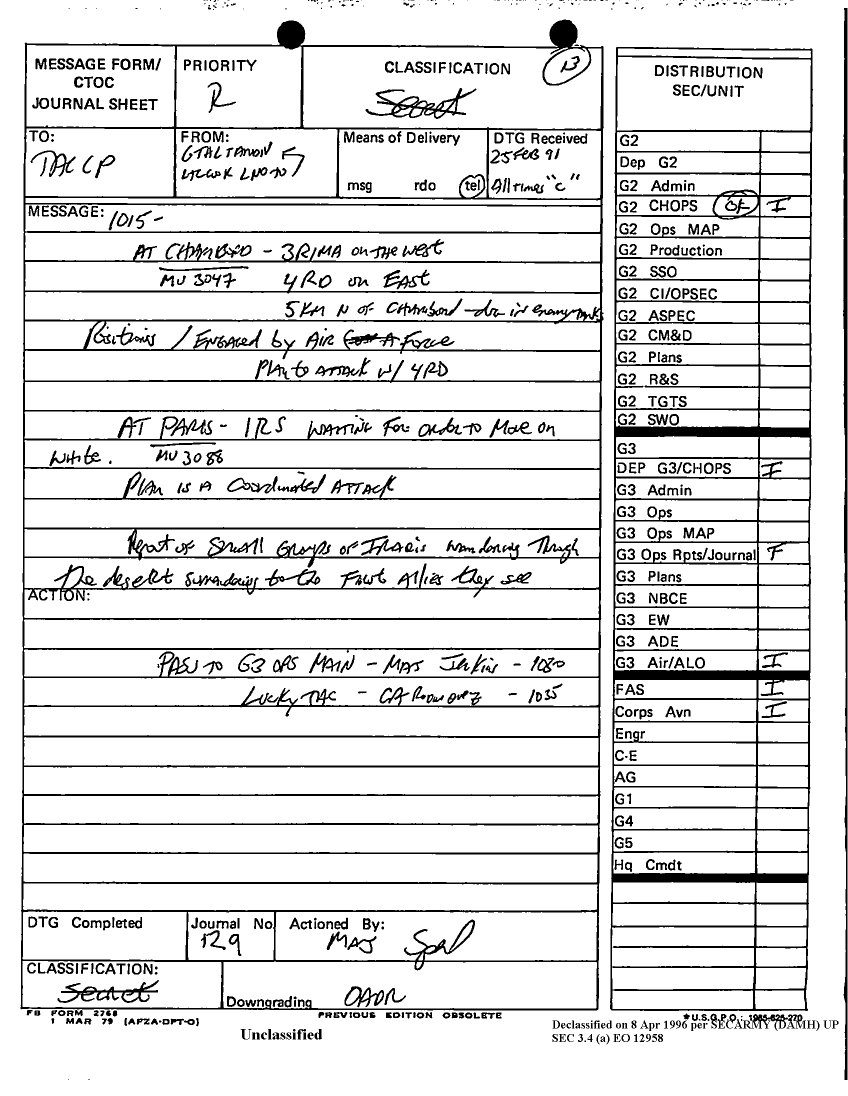 MESSAGE FORM/
CTOC
JOURNAL SHEET
PRIORITY
R
CLASSIFICATION
Secret
13
TO:
TAC CP
FROM:
Means of Delivery
msg rdo tel
DTG Received
25 FEB 91
All times "C"
MESSAGE: 1015-
AT CHAMBORD - 3RIMA on the west
MU 3047 4RD on EAST
5 KM N of Chambord - in enemy tanks
Positions / ENGAGED by AIR Force
Plan to ATTACK w/ 4RD
AT PARIS - 1RS WAITING For order to Move on
white. MU 3088
PLAN is A Coordinated ATTACK
Report of Small Groups of Iraqis wandering Through
The desert surrendering to the First Allies they see
ACTION:
PASS TO G3 OPS MAIN - MAJ Jenkins - 1030
Lucky TAC - - 1035
DTG Completed
Journal No.
129
Actioned By:
MAJ
CLASSIFICATION:
Secret
Downgrading OADR
FB FORM 2768
1 MAR 79 (AFZA-DPT-O)
PREVIOUS EDITION OBSOLETE
Unclassified
DISTRIBUTION
SEC/UNIT
G2
Dep G2
G2 Admin
G2 CHOPS I
G2 Ops MAP
G2 Production
G2 SSO
G2 CI/OPSEC
G2 ASPEC
G2 CM&D
G2 Plans
G2 R&S
G2 TGTS
G2 SWO
G3
DEP G3/CHOPS I
G3 Admin
G3 Ops
G3 Ops MAP
G3 Ops Rpts/Journal F
G3 Plans
G3 NBCE
G3 EW
G3 ADE
G3 Air/ALO I
FAS I
Corps Avn I
Engr
C-E
AG
G1
G4
G5
Hq Cmdt
★U.S.G.P.O.: 1985-625-270
Declassified on 8 Apr 1996 per SECARMY (DAMH) UP
SEC 3.4 (a) EO 12958